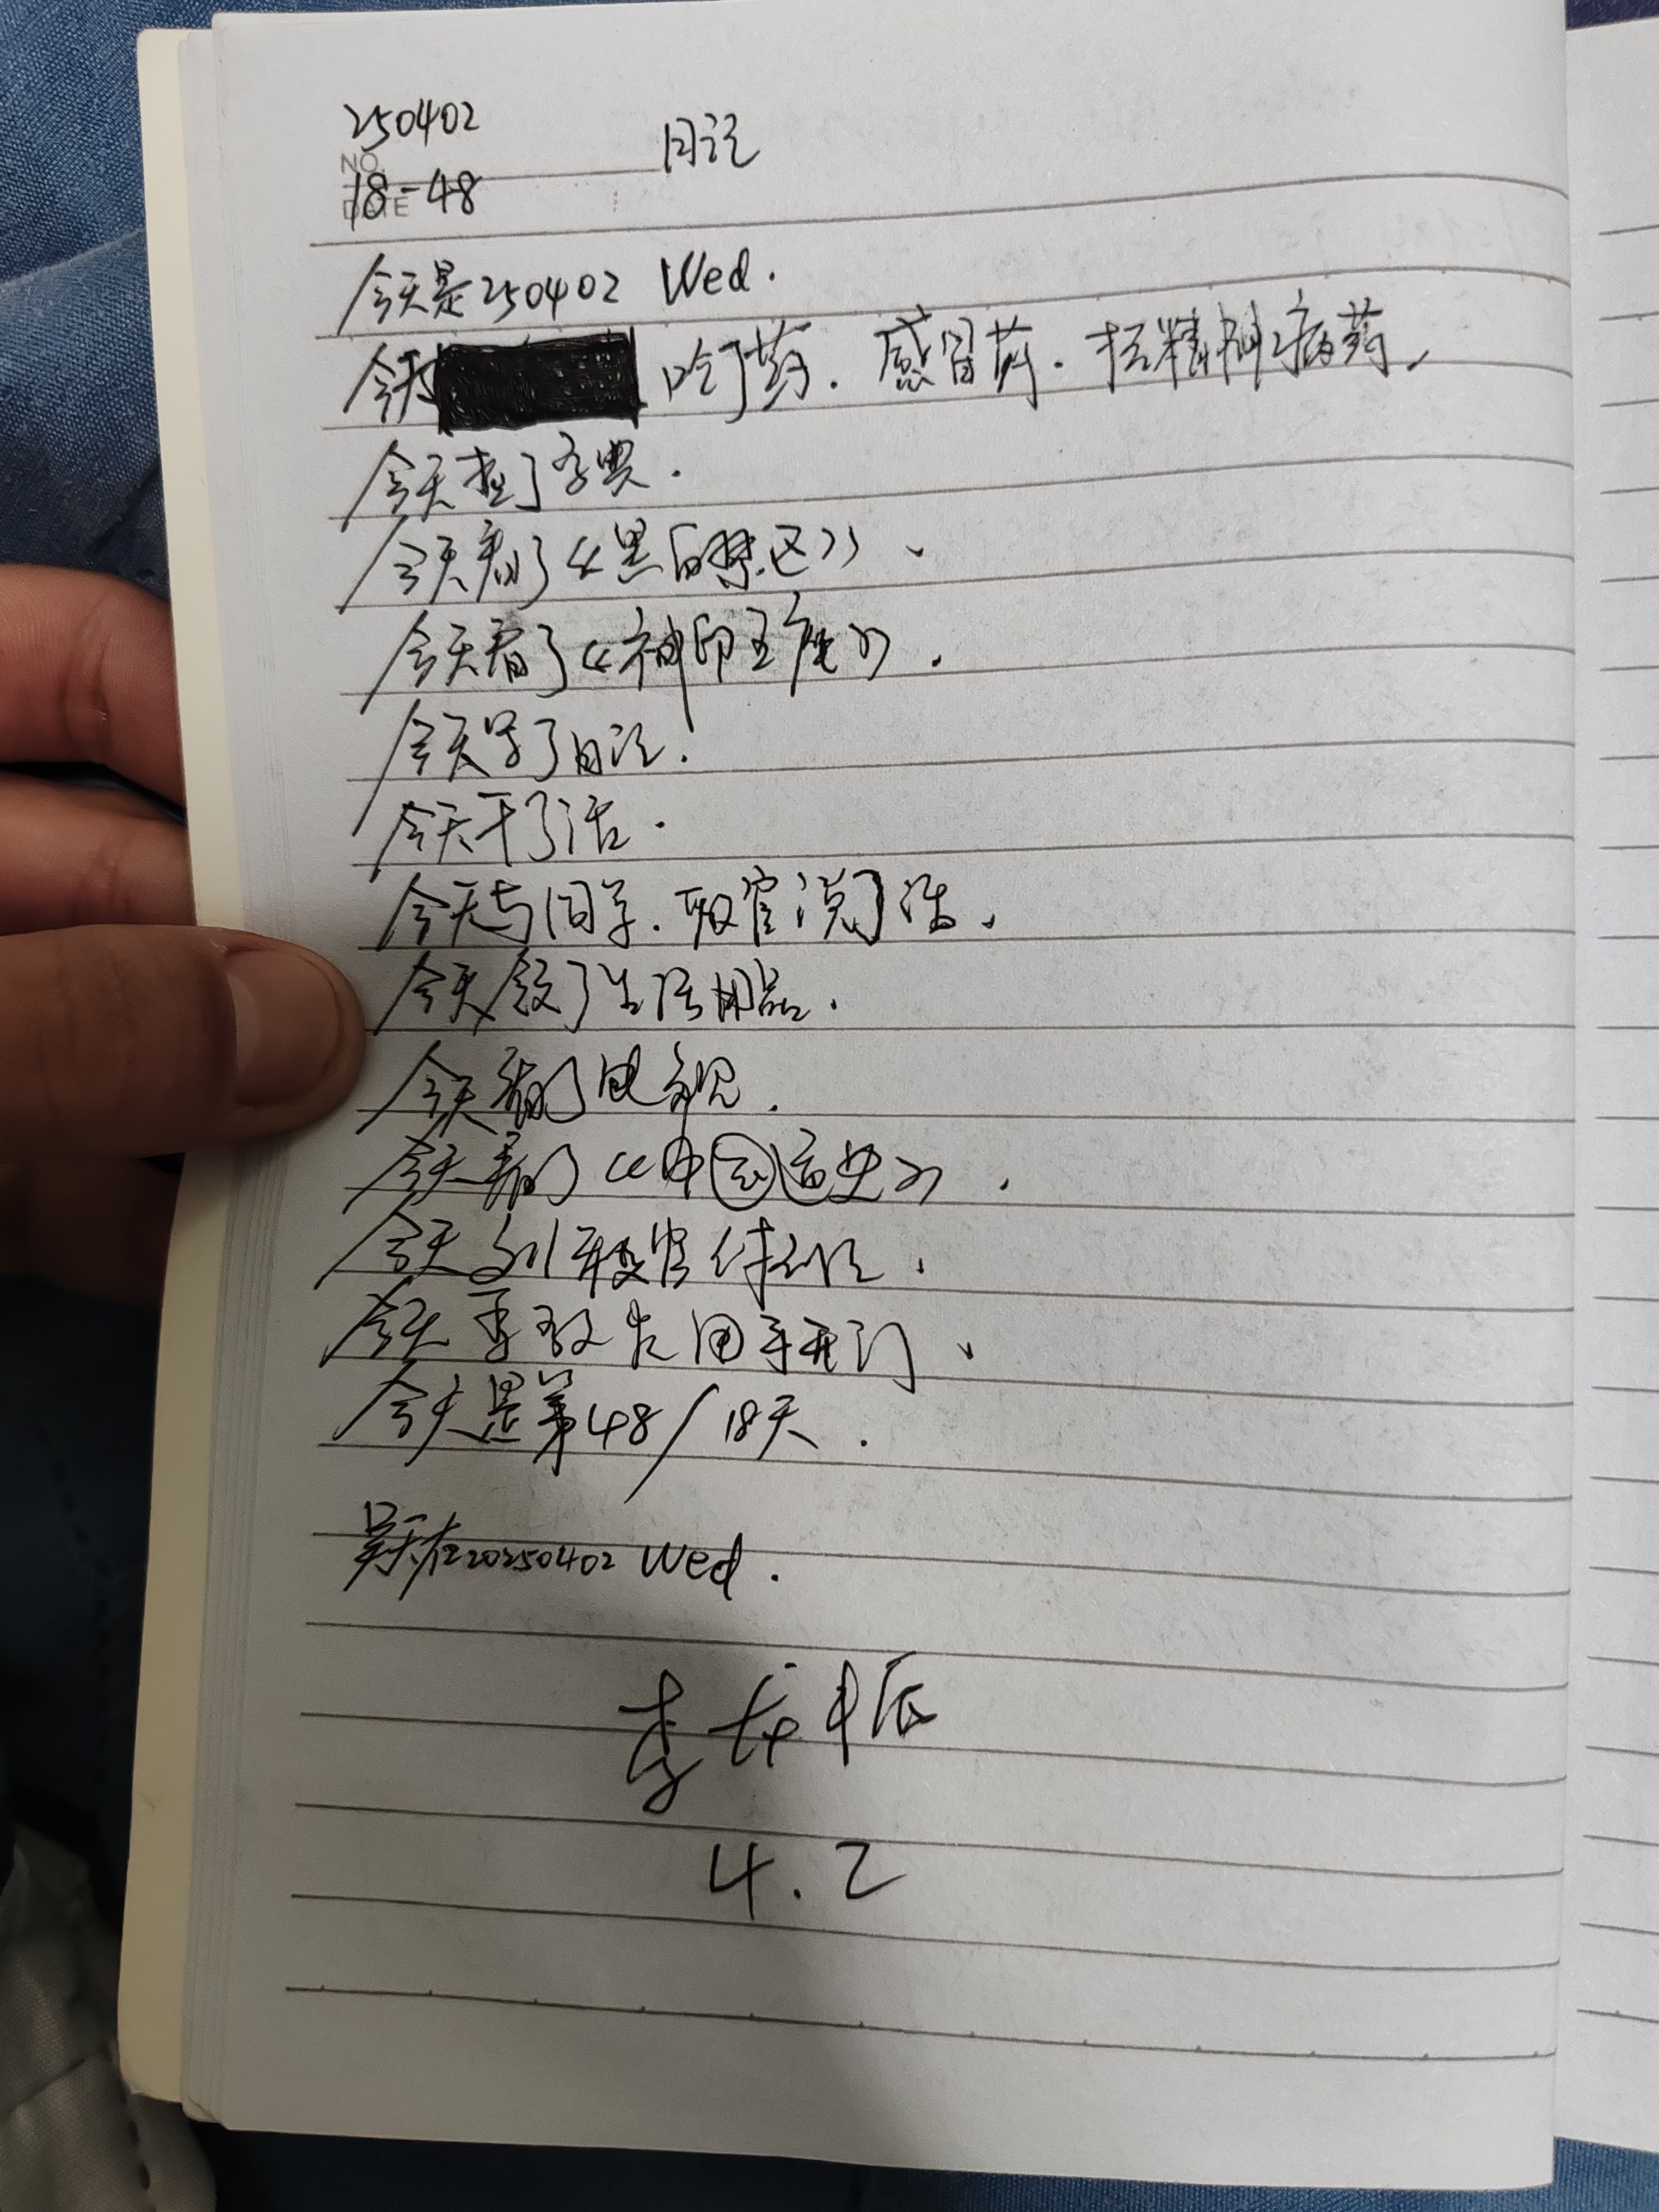 250402
日记
NO.
18-48
DATE
今天是250402 Wed.
今天 吃了药.感冒药.抗精神病药.
今天查了字典.
今天看了《黑白禁区》.
今天看了《神印王座》.
今天写了日记.
今天干了活.
今天与同学.教官说了话.
今天领了生活用品.
今天看了电视.
今天看了《中国通史》.
今天 教官
今天 教官 手开门.
今天是第48/18天.
昊天在20250402 Wed.
李
4.2